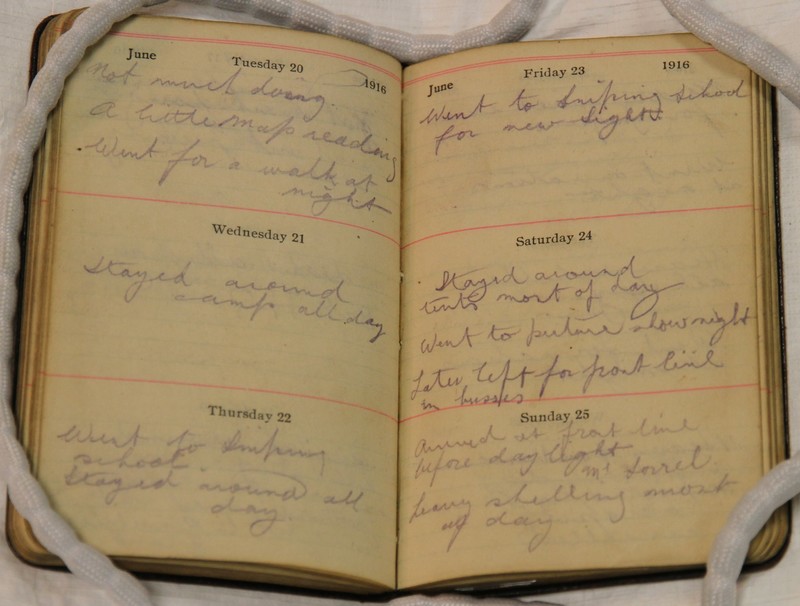 June Tuesday 20 1916
Not much doing.
A little map reading
Went for a walk at
night
Wednesday 21
Stayed around
camp all day
Thursday 22
Went to Sniping
school.
Stayed around all
day.
June Friday 23 1916
Went to Sniping School
for new sights.
Saturday 24
Stayed around
tents most of day
Went to picture show night
Later left for front line
in busses
Sunday 25
Arrived at front line
before day light
Mt Sorrel
heavy shelling most
of day